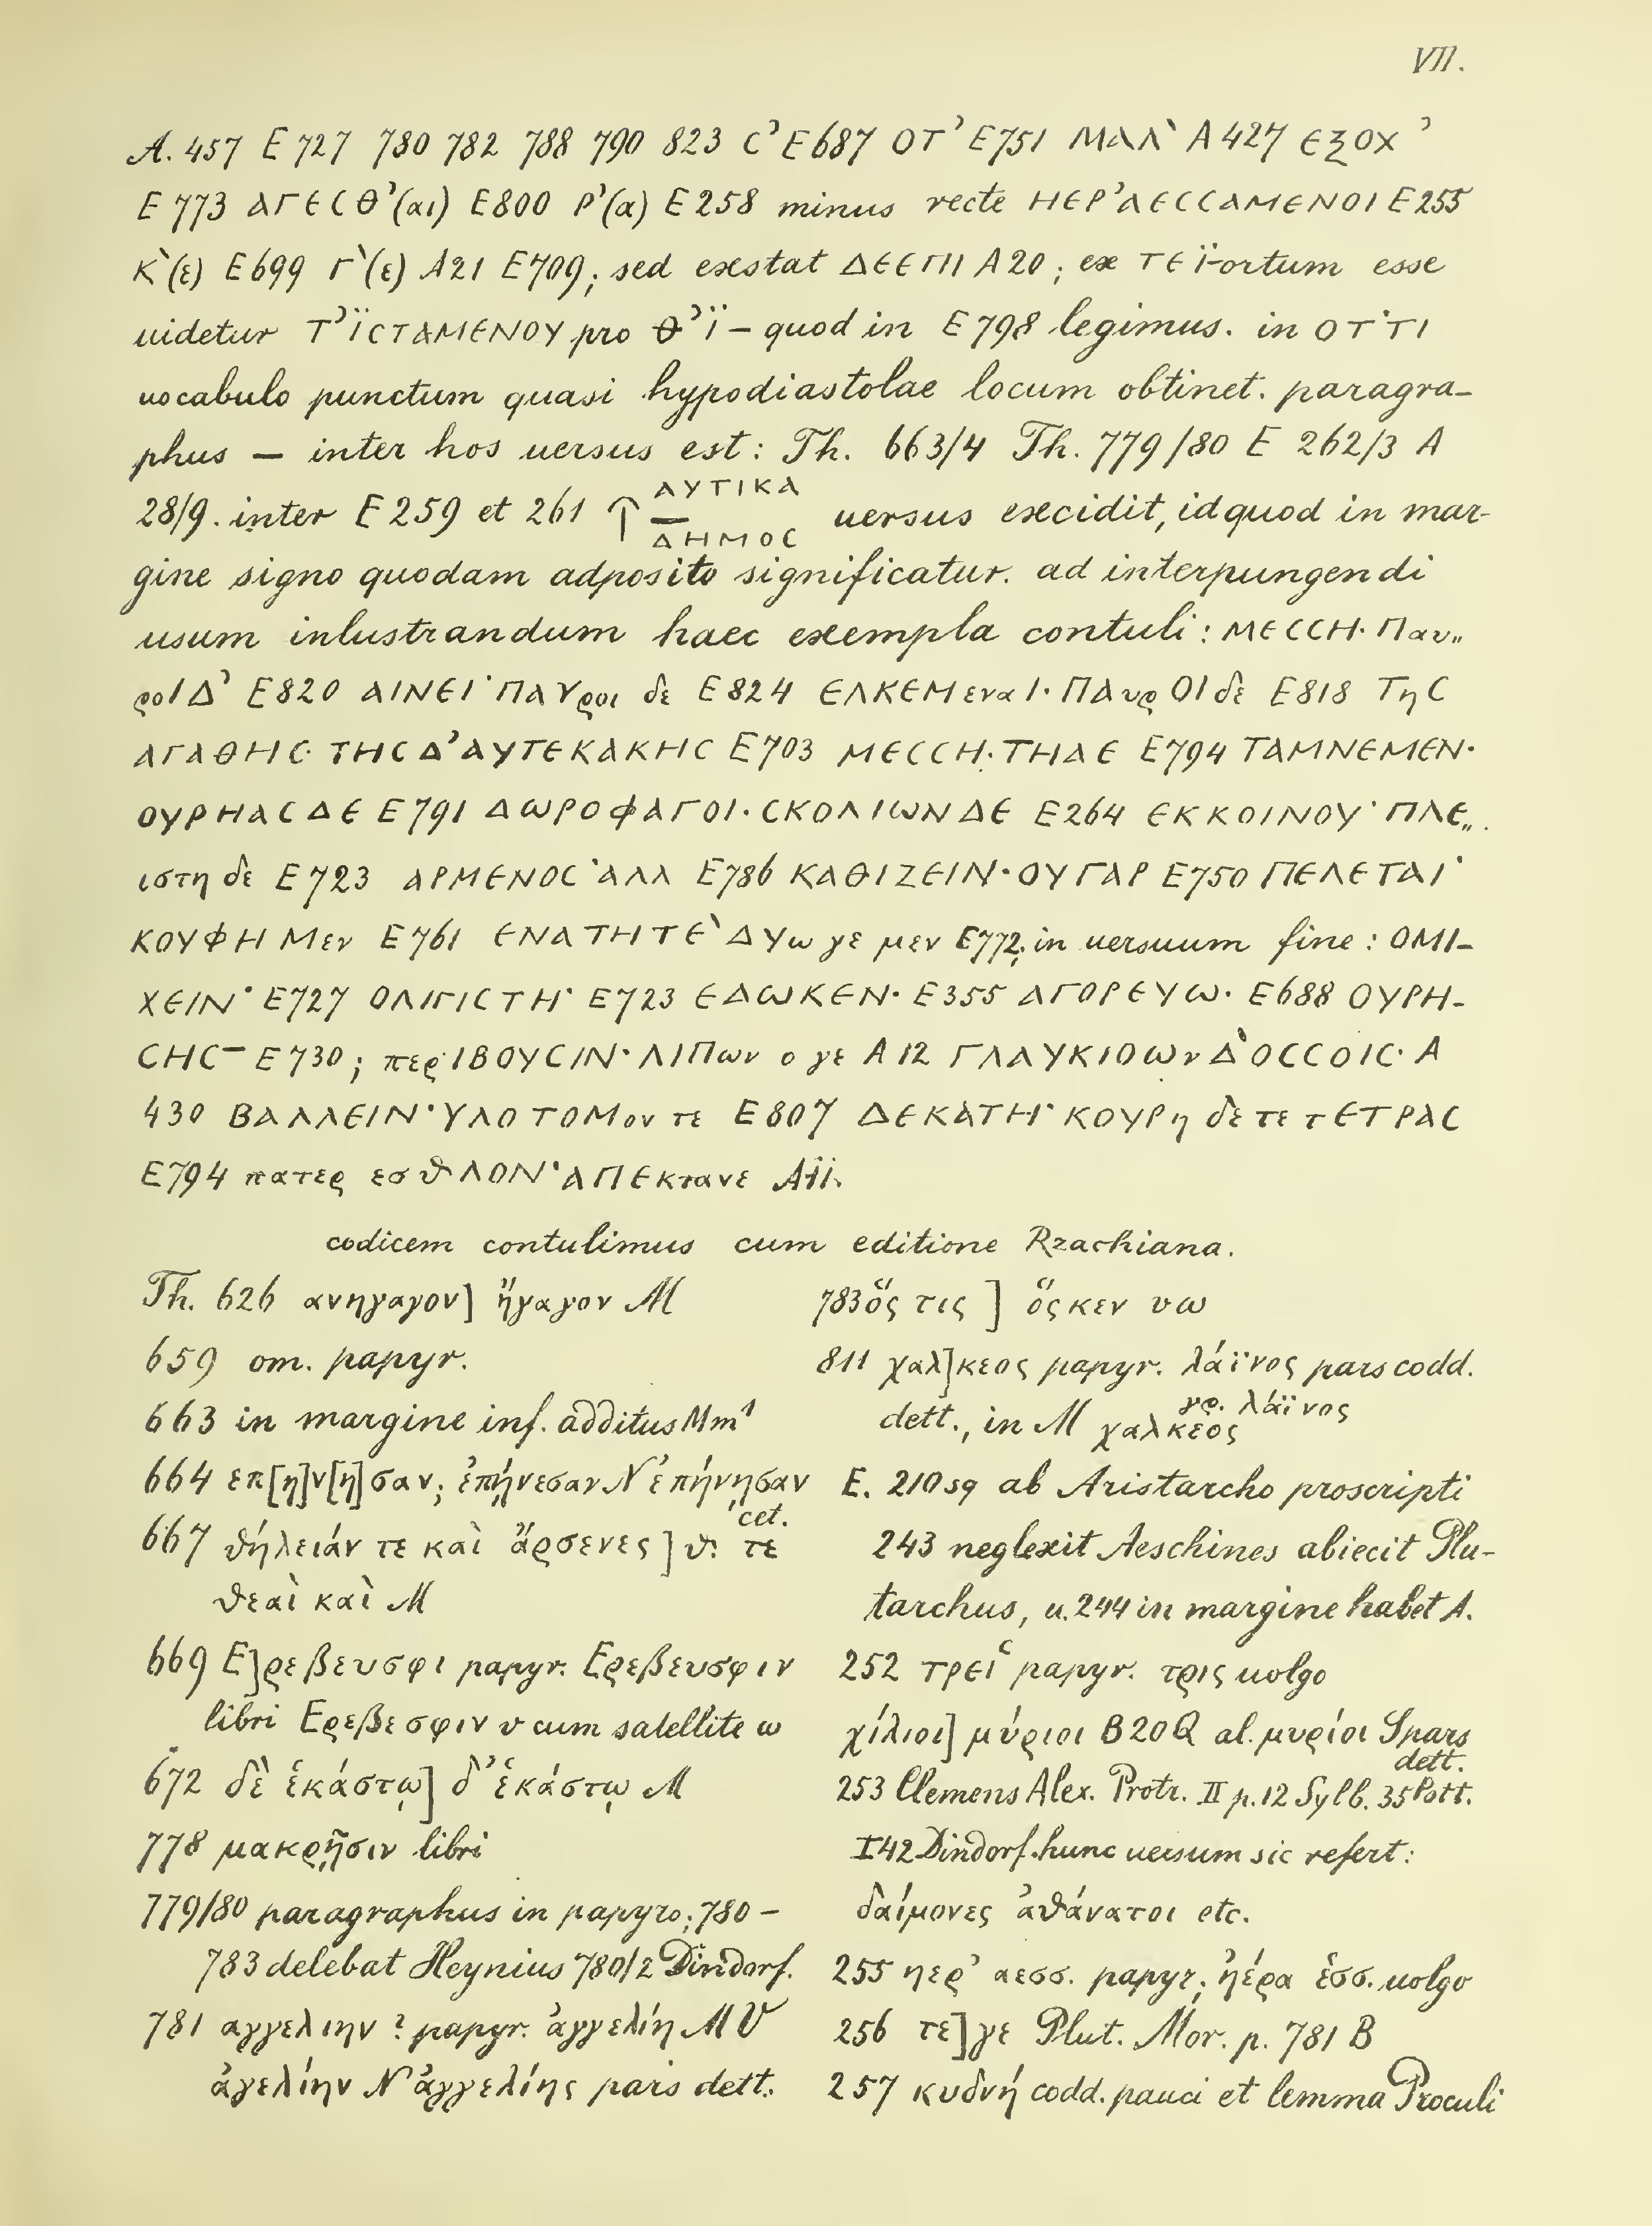 VII.
A. 457 E 727 780 782 788 790 823 C᾽ E 687 OT᾽ E 751 ΜΑΛ` A 427 ЄΞΟΧ᾽
E 773 ΑΓЄCΘ᾽(αι) E 800 Ρ᾽(α) E 258 minus recte ΗЄΡ᾽ΑЄCCΑΜЄΝΟΙ E 255
Κ`(ε) E 699 Γ`(ε) A 21 E 709; sed exstat ΔЄЄΠΙ A 20; ex ΤЄΪ-ortum esse
uidetur Τ᾽ΪCΤΑΜЄΝΟΥ pro Θ᾽Ϊ – quod in E 798 legimus. in ΟΤ·ΤΙ
uocabulo punctum quasi hypodiastolae locum obtinet. paragra-
phus — inter hos uersus est: Th. 663/4 Th. 779/80 E 262/3 A
28/9. inter E 259 et 261 ΑΥΤΙΚΑ — ΔΗΜΟC uersus excidit, id quod in mar-
gine signo quodam adposito significatur. ad interpungendi
usum inlustrandum haec exempla contuli: ΜЄCCΗ· Παυ„
ροΙΔ᾽ E 820 ΑΙΝЄΙ·ΠΑΥροι δε E 824 ЄΛΚЄΜεναΙ·ΠΑυρΟΙ δε E 818 ΤηC
ΑΓΑΘΗC· ΤΗCΔ᾽ΑΥΤЄΚΑΚΗC E 703 ΜЄCCΗ·ΤΗΔЄ E 794 ΤΑΜΝЄΜЄΝ·
ΟΥΡΗΑCΔЄ E 791 ΔΩΡΟΦΑΓΟΙ·CΚΟΛΙΩΝΔЄ E 264 ЄΚΚΟΙΝΟΥ·ΠΛЄ„
ιστη δε E 723 ΑΡΜЄΝΟC·ΑΛΛ E 786 ΚΑΘΙΖЄΙΝ·ΟΥΓΑΡ E 750 ΠЄΛЄΤΑΙ·
ΚΟΥΦΗΜεν E 761 ЄΝΑΤΗΤЄ`ΔΥω γε μεν E 772; in uersuum fine: ΟΜΙ-
ΧЄΙΝ· E 727 ΟΛΙΓΙCΤΗ· E 723 ЄΔΩΚЄΝ· E 355 ΑΓΟΡЄΥΩ· E 688 ΟΥΡΗ-
CΗC– E 730; περΙΒΟΥCΙΝ·ΛΙΠων ο γε A 12 ΓΛΑΥΚΙΟΩν Δ`ΟCCΟΙC· A
430 ΒΑΛΛЄΙΝ·ΥΛΟΤΟΜον τε E 807 ΔЄΚΑΤΗ·ΚΟΥΡη δε τε τЄΤΡΑC
E 794 πατερ εσθΛΟΝ·ΑΠЄκτανε A 11.
codicem contulimus cum editione Rzachiana.
Th. 626 ανηγαγον] ἤγαγον M
659 om. papyr.
663 in margine inf. additus M m¹
664 επ[η]ν[η]σαν; ἐπῄνεσαν N ἐπῄνησαν
cet.
667 θήλειάν τε καὶ ἄρσενες] θ. τε
θεαὶ καὶ M
669 Ε]ρεβευσφι papyr. Ερεβευσφιν
libri Ερεβεσφιν υ cum satellite ω
672 δὲ ἑκάστῳ] δ᾽ ἑκάστῳ M
778 μακρῇσιν libri
779/80 paragraphus in papyro; 780 –
783 delebat Heynius 780/2 Dindorf.
781 αγγελιην? papyr. ἀγγελίη M U
ἀγελίην N ἀγγελίης pars dett.
783 ὅς τις] ὅς κεν υω
811 χαλ]κεος papyr. λάϊνος pars codd.
dett., in M χαλκεος γρ. λάϊνος
E. 210 sq ab Aristarcho proscripti
243 neglexit Aeschines abiecit Plu-
tarchus, u. 244 in margine habet A.
252 ΤΡЄΙC papyr. τρις uolgo
χίλιοι] μύριοι B 20 Q al. μυρίοι S pars
dett.
253 Clemens Alex. Protr. II p. 12 Sylb. 35 Pott.
I 42 Dindorf. hunc uersum sic refert:
δαίμονες ἀθάνατοι etc.
255 ηερ᾽ αεσσ. papyr; ἠέρα ἑσσ. uolgo
256 τε] γε Plut. Mor. p. 781 B
257 κυδνή codd. pauci et lemma Proculi